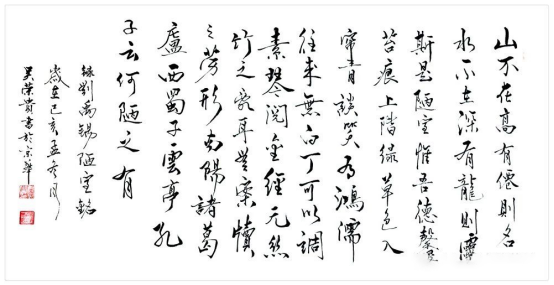 山不在高有僊則名
水不在深有龍則靈
斯是陋室惟吾德馨
苔痕上階緑草色入
簾青談笑有鴻儒
往来無白丁可以調
素琴閲金經无絲
竹之亂耳無案牘
之勞形南陽諸葛
廬西蜀子雲亭孔
子云何陋之有
錄劉禹錫陋室銘
歲在己亥孟冬月
榮貴書於京華